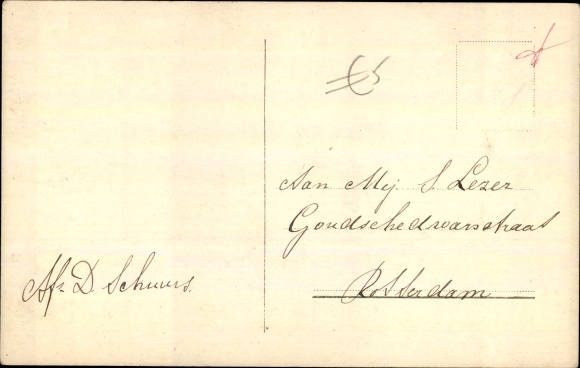 Aan Mej S. Lezer
Goudschedwarsstraat
Rotterdam
Afz D Schuurs.